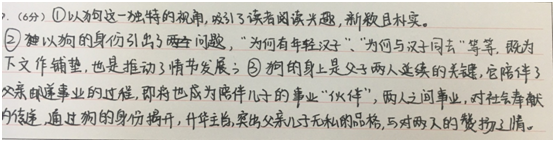 . (6分) ①以狗这一独特的视角,吸引了读者阅读兴趣,新颖且朴实。
②以狗的身份引出了问题,“为何有年轻汉子”、“为何与汉子同去”等等,既为
下文作铺垫,也是推动了情节发展;③狗的身上是父子两人连续的关键,它陪伴了
父亲邮递事业的过程,即将也成为陪伴儿子的事业“伙伴”,两人之间事业,对社会奉献
的传递,通过狗的身份揭开,升华主旨,突出父亲儿子无私的品格,与对两人的赞扬之情。